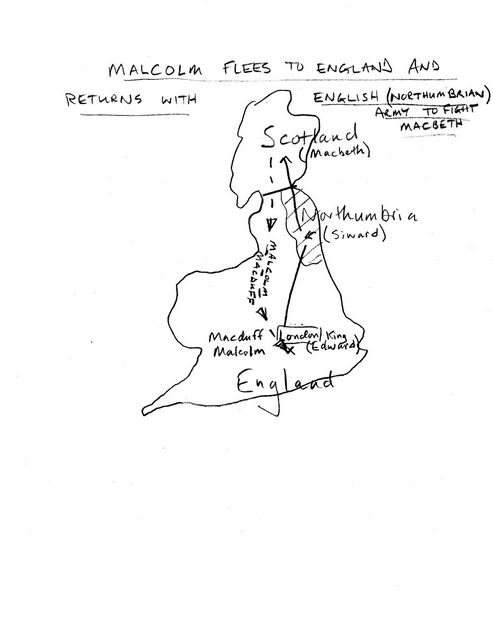 MALCOLM FLEES TO ENGLAND AND
RETURNS WITH ENGLISH (NORTHUMBRIAN)
ARMY TO FIGHT
MACBETH
Scotland
(Macbeth)
Northumbria
(Siward)
MALCOLM
MACDUFF
Macduff London King
Malcolm (Edward)
England